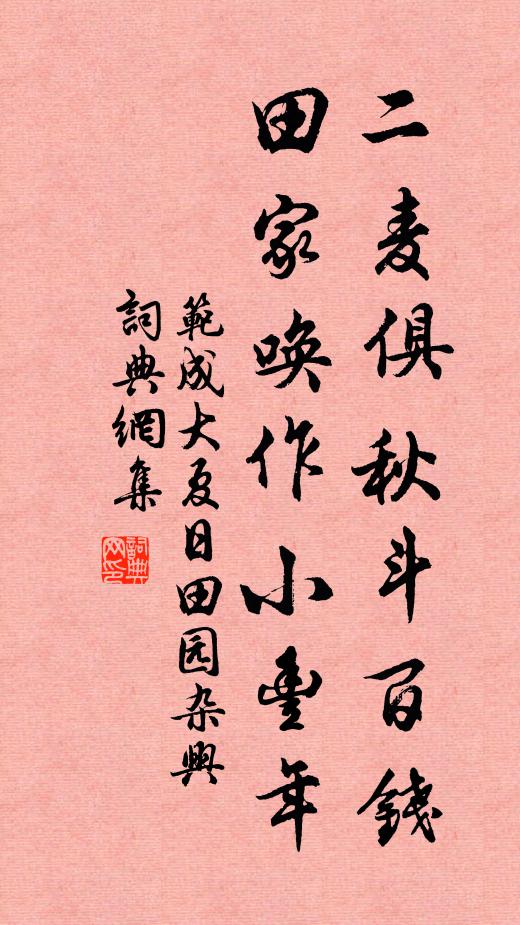 二麦俱秋斗百錢
田家喚作小豐年
範成大夏日田园杂興
詞典網集
詞典网印